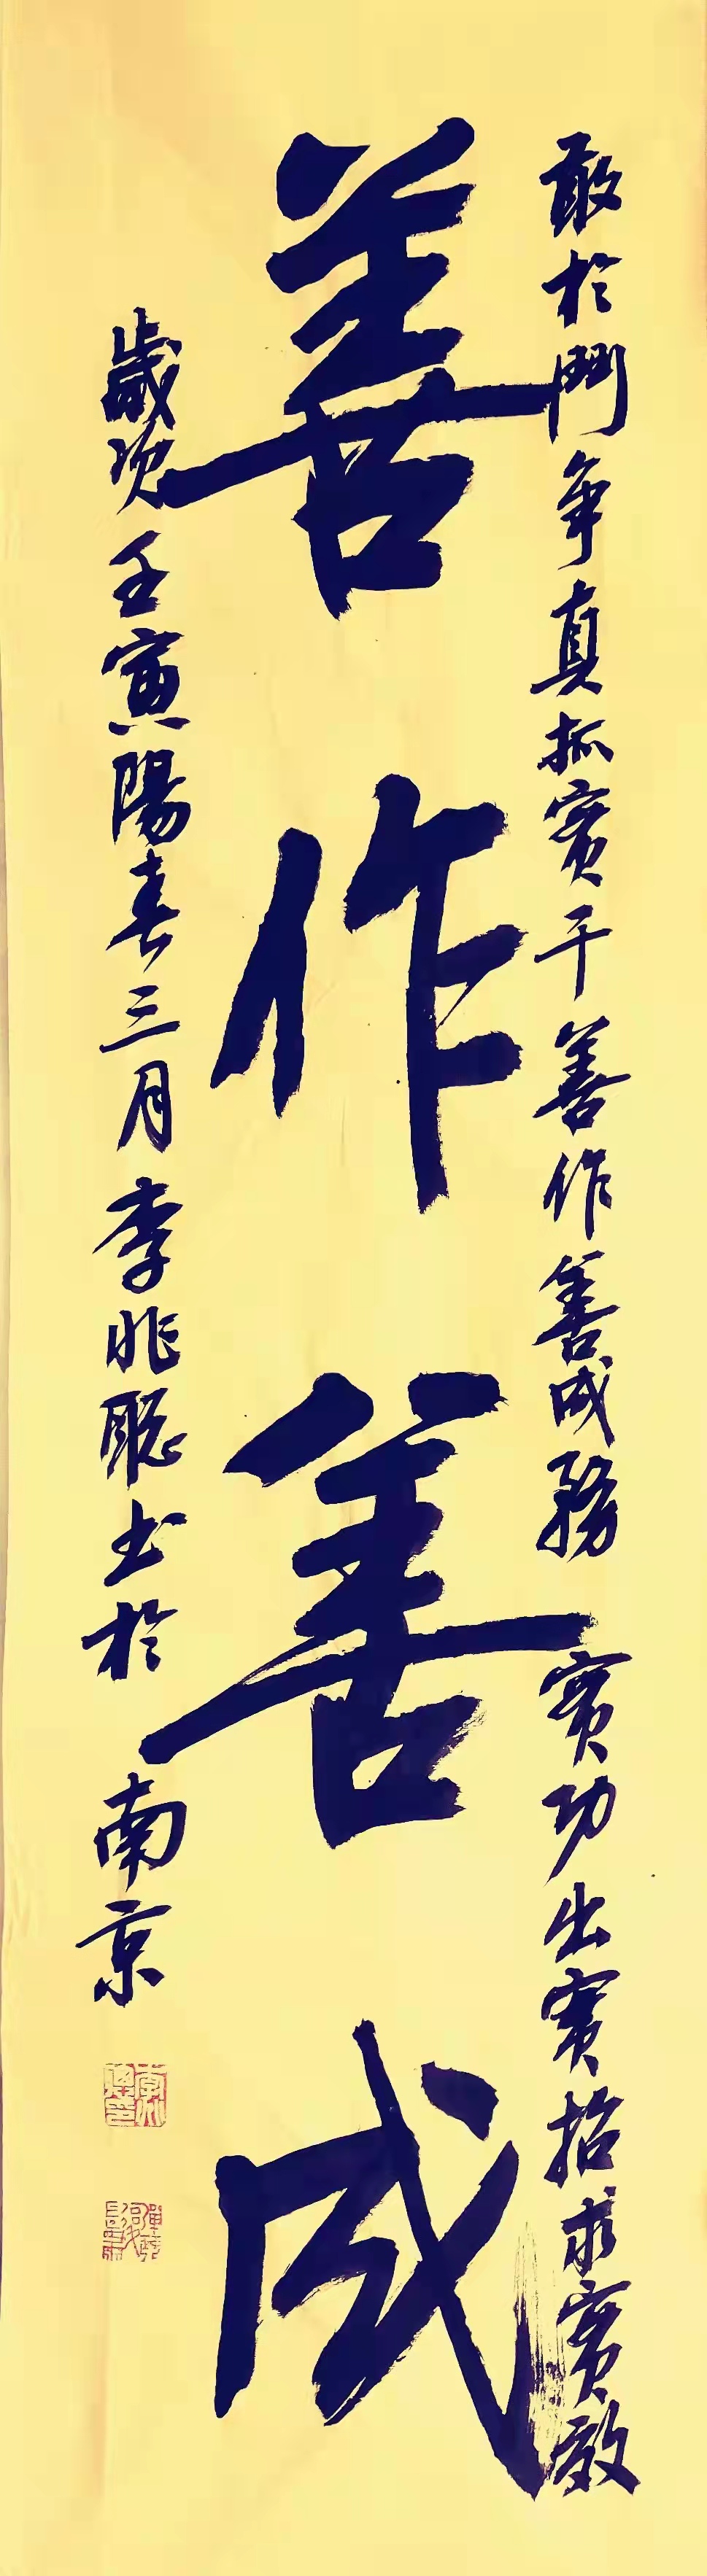 敢於鬥爭真抓實干善作善成務實功出實招求實效
善作善成
歲次壬寅陽春三月李兆聰书於南京